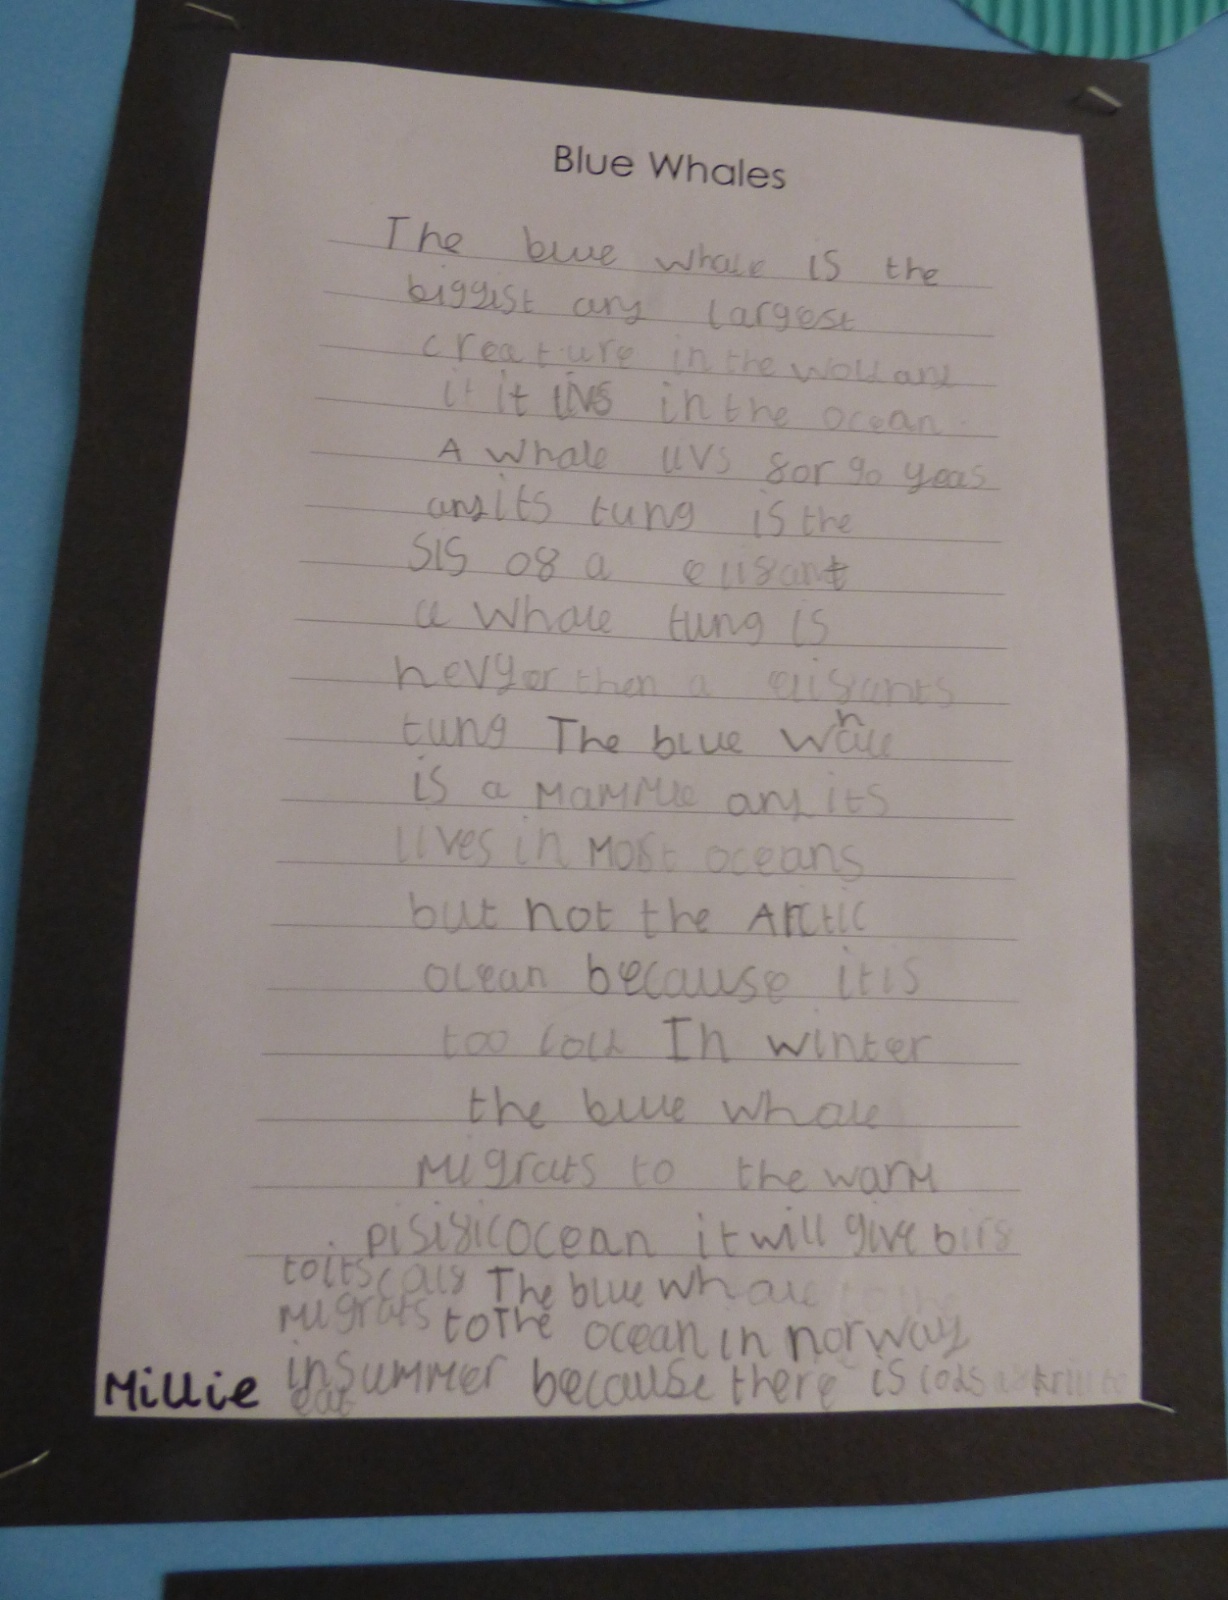 Blue Whales
The blue whale is the
biggist any largest
creature in the wolld any
it it livs in the ocean.
A whale livs 80r 90 yeas
any its tung is the
sis of a elifant
a whale tung is
hevyer then a elifants
tung The blue whale
is a mammle any its
lives in most oceans
but not the Arctic
ocean because it is
too cold In winter
the blue whale
migrats to the warm
pisific ocean it will give birs
to its calf The blue whale
migrats to The ocean in norway
in summer because there is lods
eat
Millie